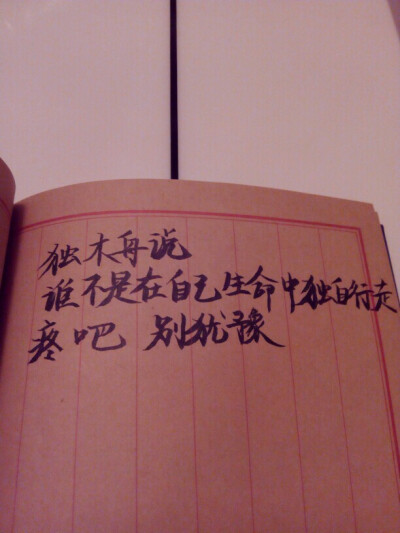 独木舟说
谁不是在自己生命中独自行走
疼吧 别犹豫